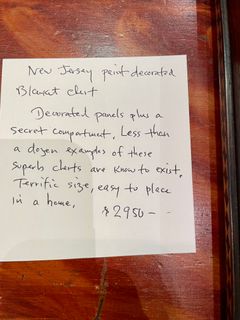 New Jersey paint decorated
Blanket chest
Decorated panels plus a
secret compartment. Less than
a dozen examples of these
superb chests are know to exist.
Terrific size, easy to place
in a home.
$2950 - -